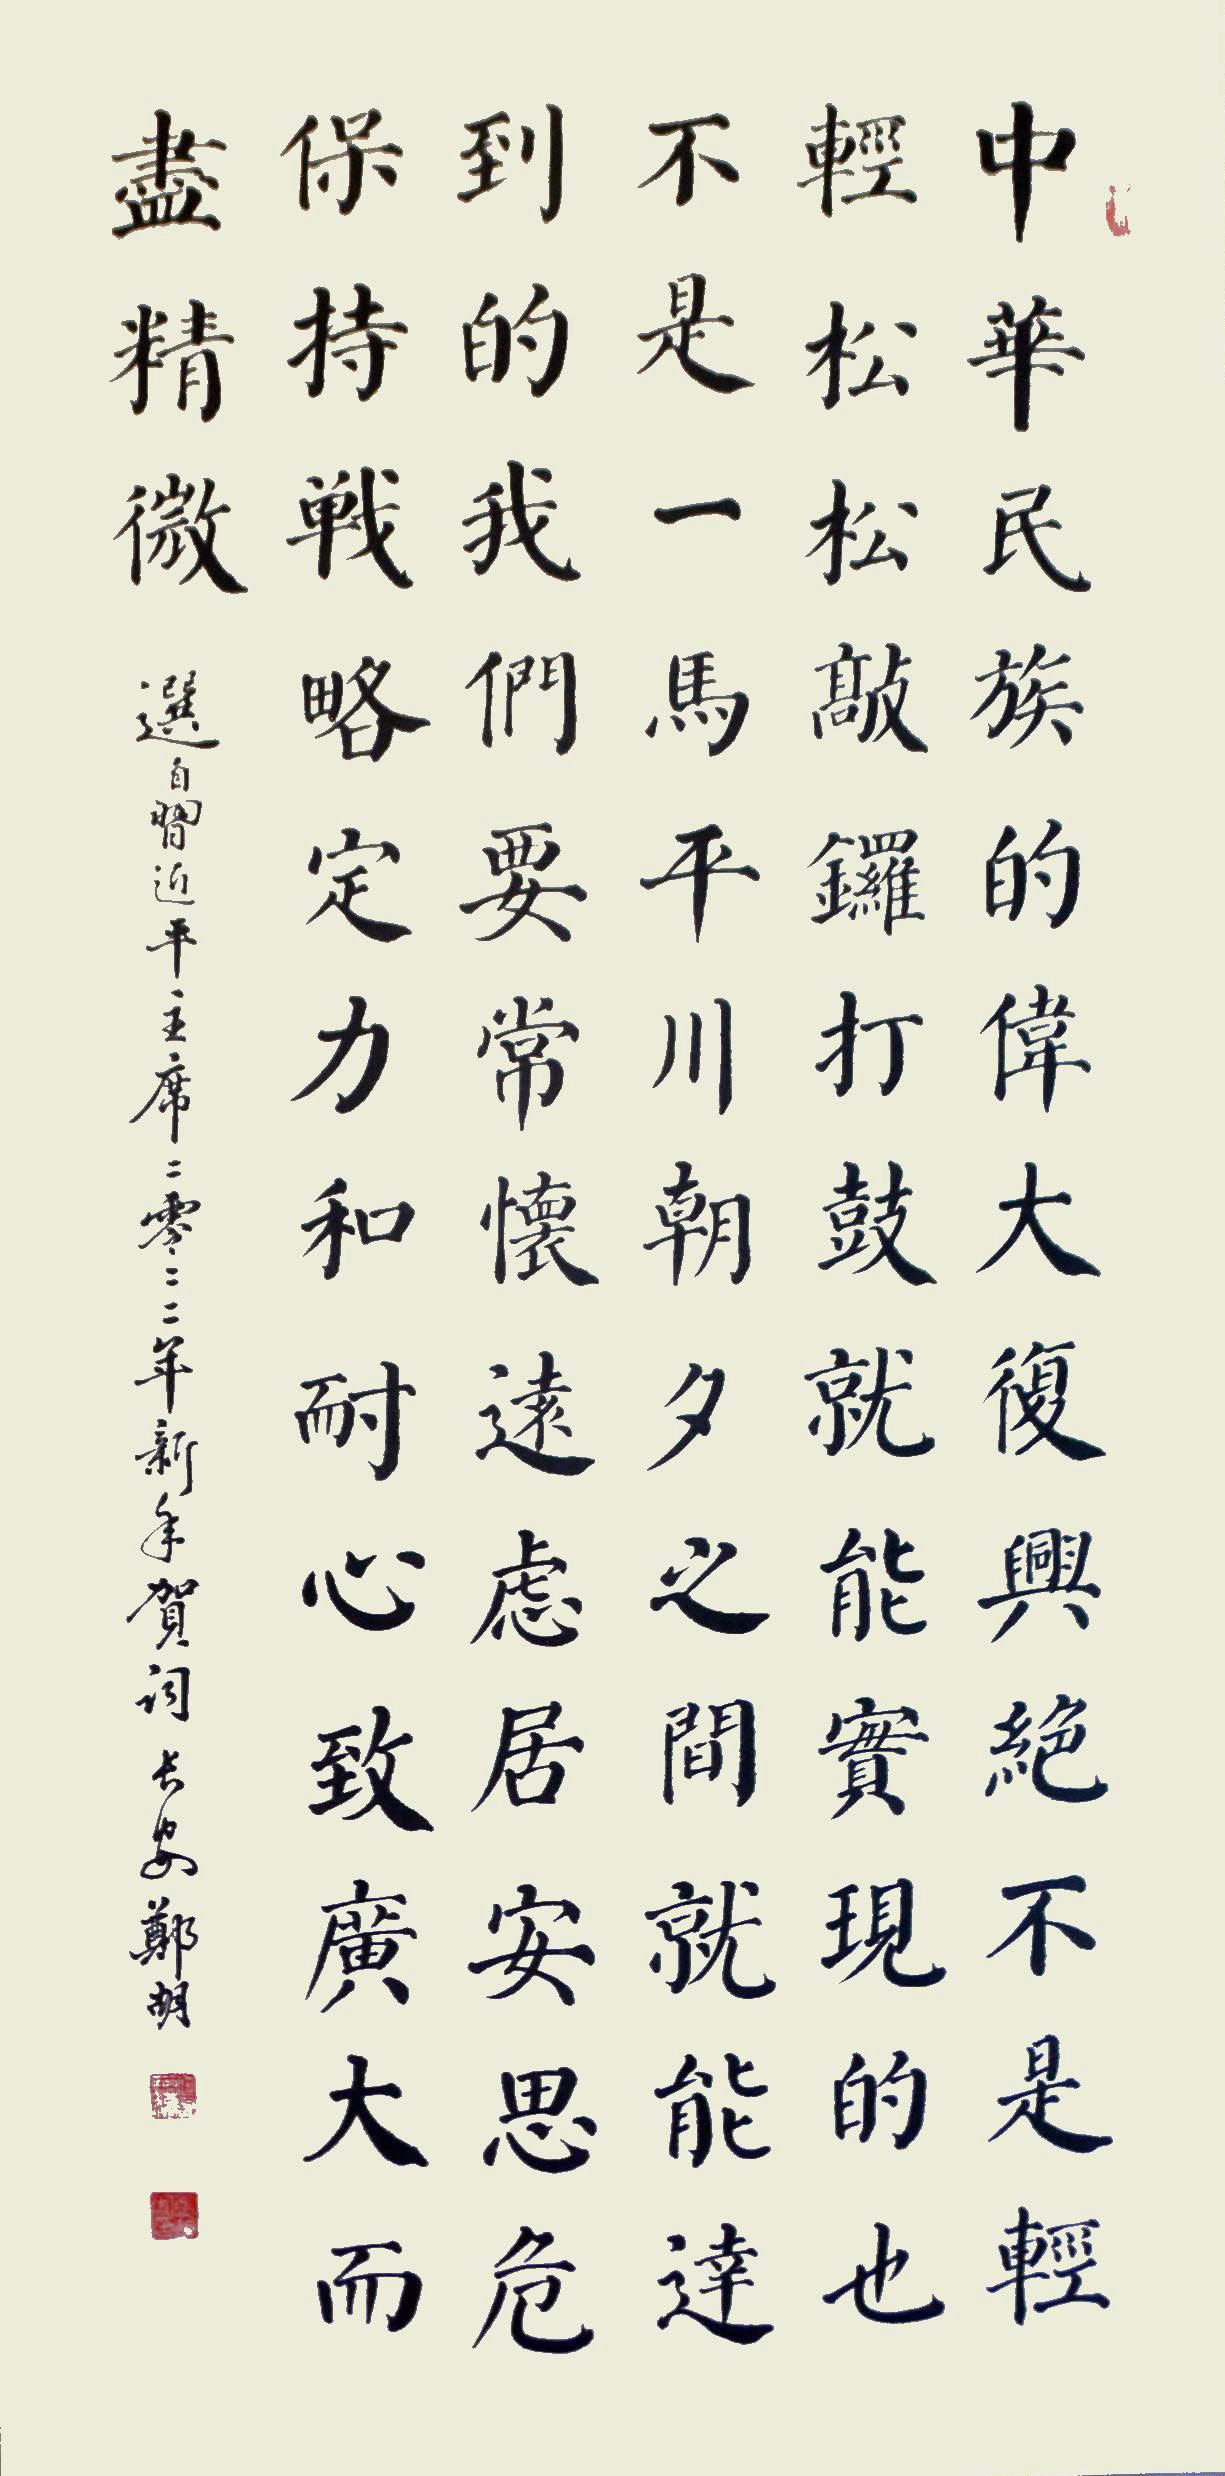 中華民族的偉大復興絶不是輕
輕松松敲鑼打鼓就能實現的也
不是一馬平川朝夕之間就能達
到的我們要常懷遠慮居安思危
保持戦略定力和耐心致廣大而
盡精微
選自習近平主席二零二二年新年賀詞 长安鄭胡